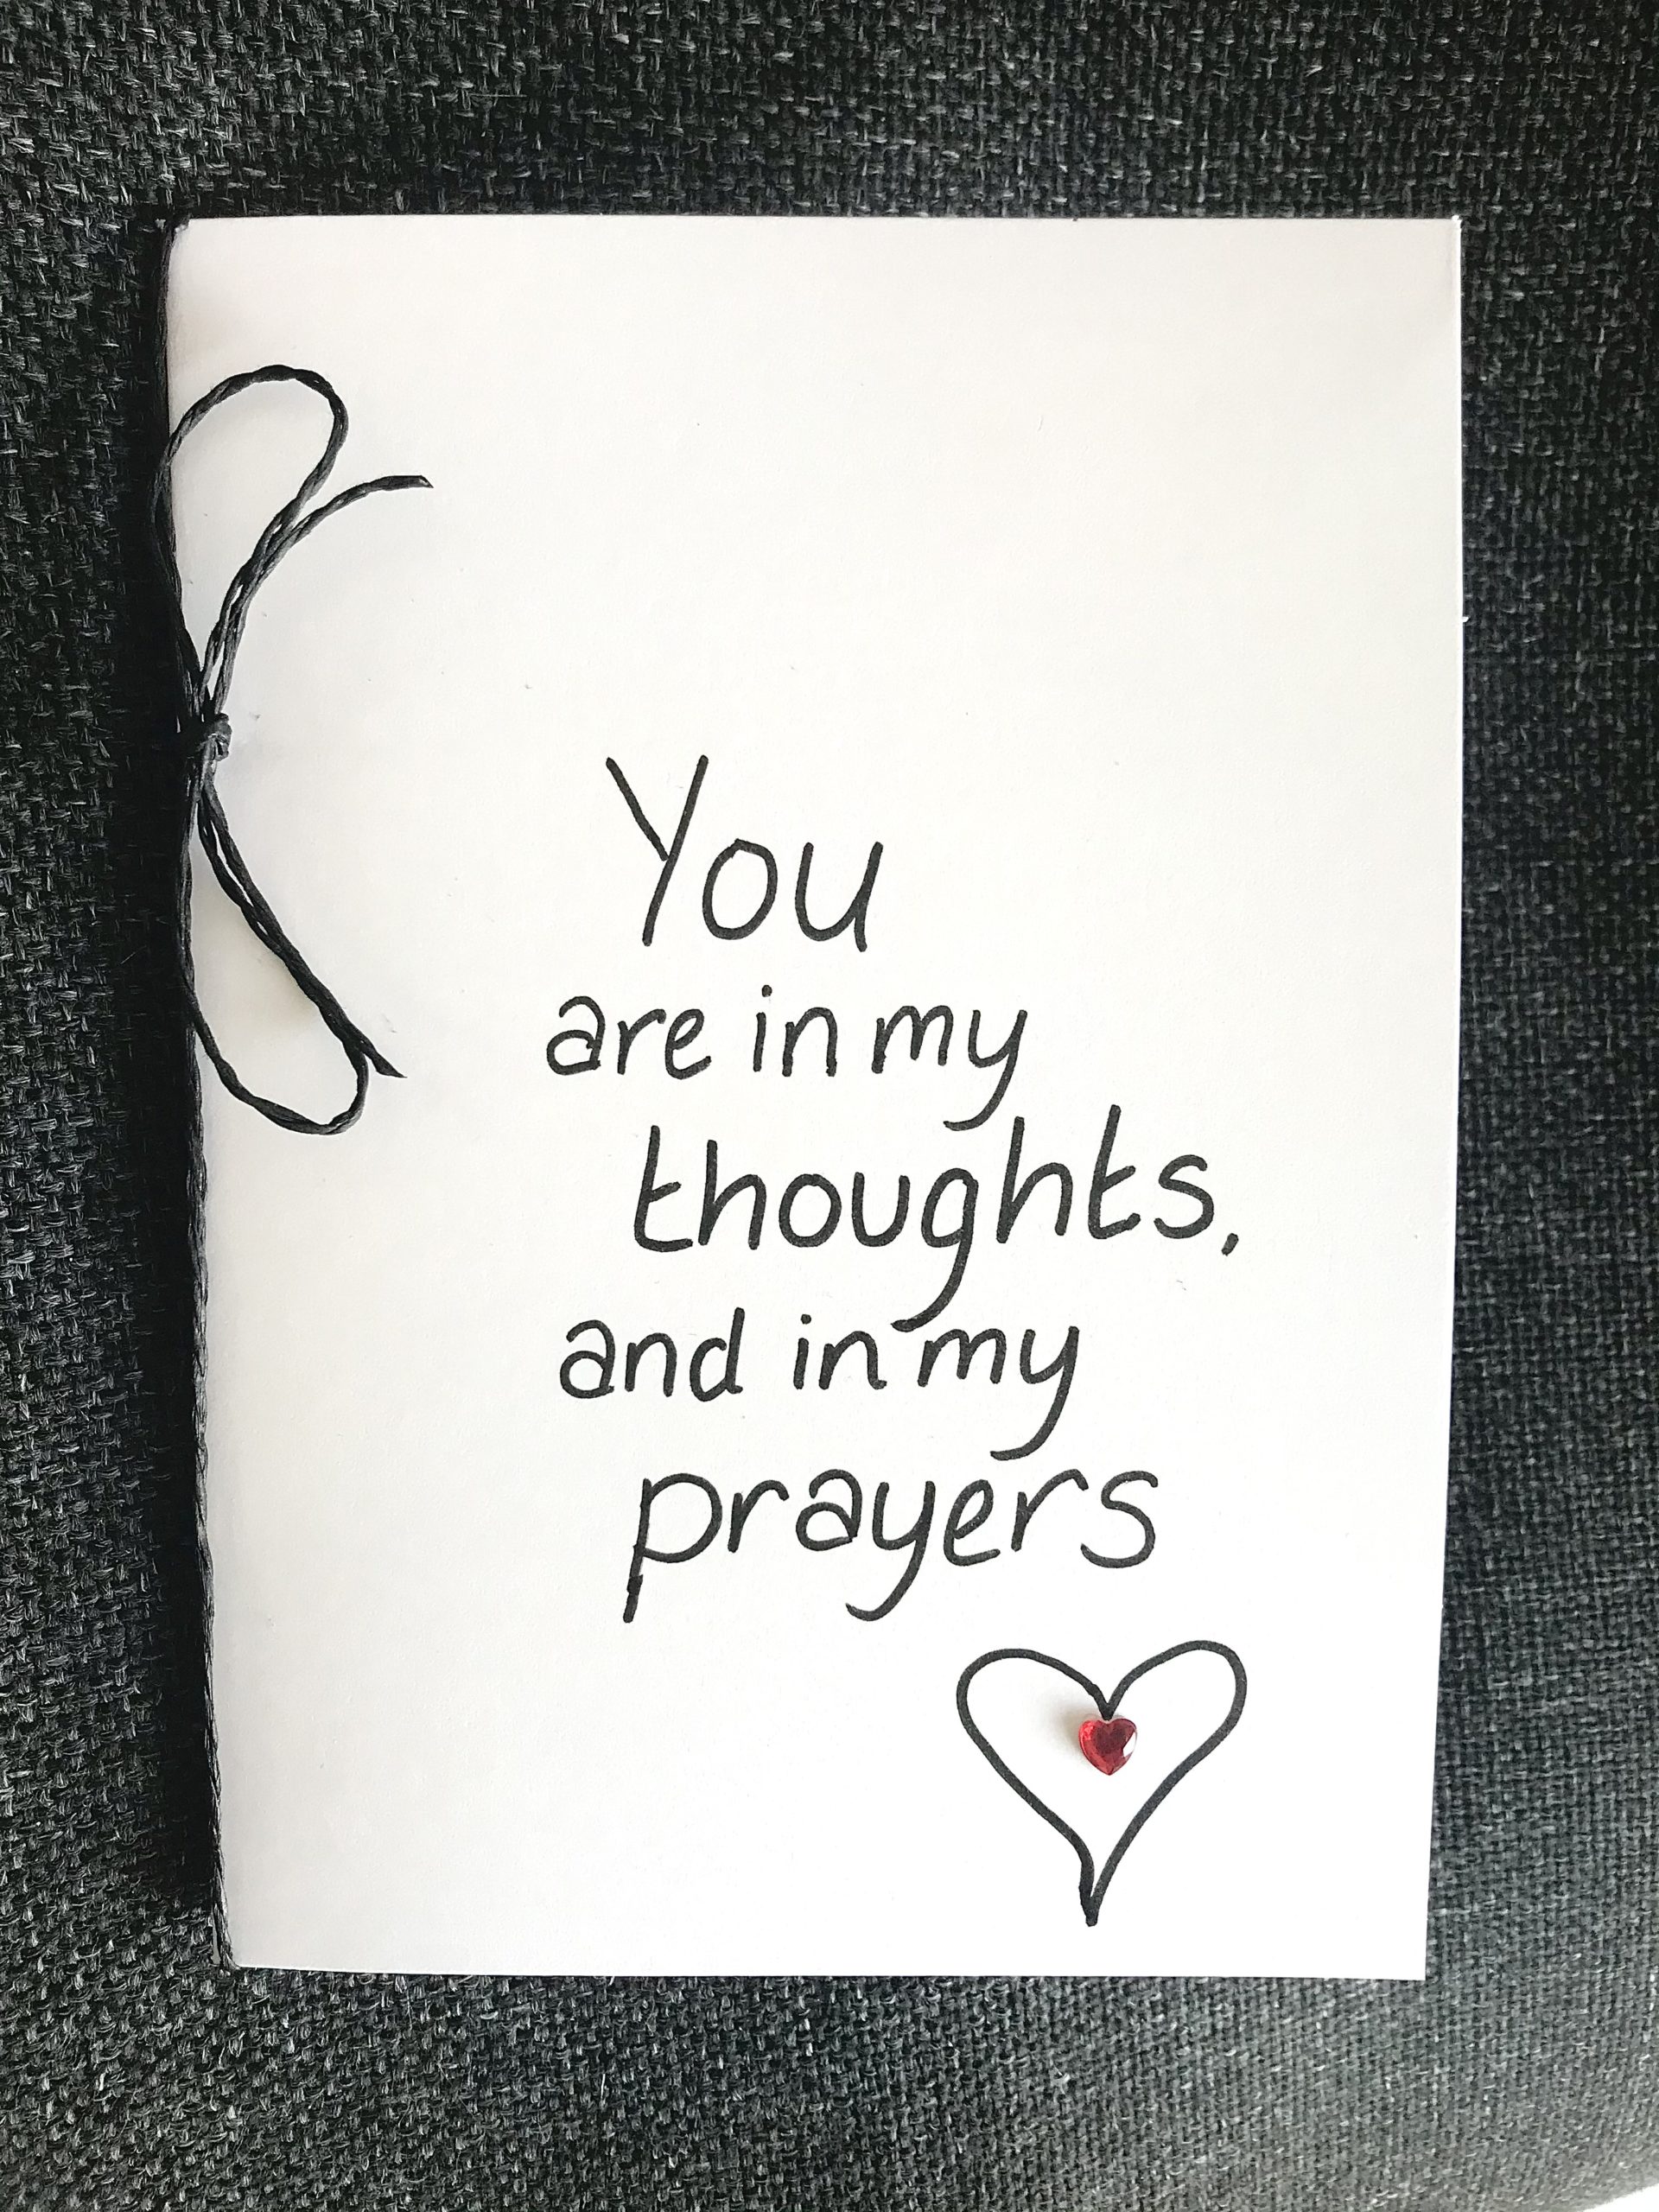 You
are in my
thoughts,
and in my
prayers